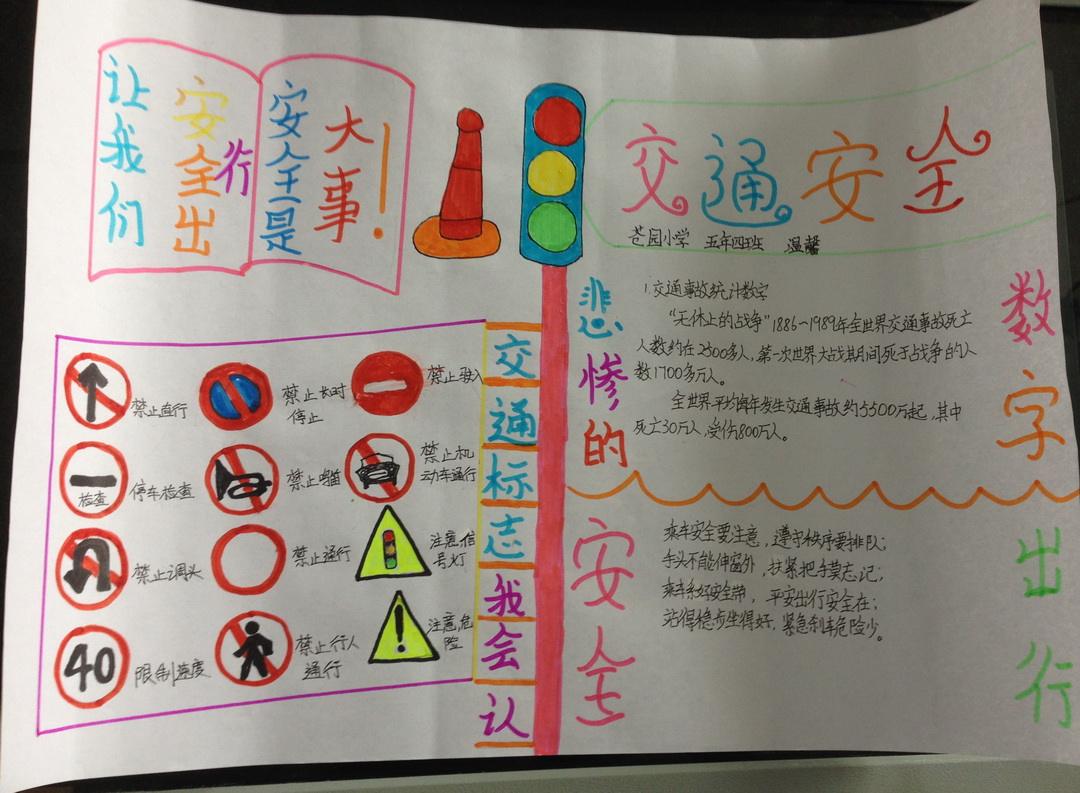 让我们
安全出
行
安全是
大事！
交通安全
苍园小学 五年四班 温馨
交通标志我会认
禁止直行
禁止长时
停止
禁止驶入
检查
停车检查
禁止鸣笛
禁止机
动车通行
禁止调头
禁止通行
注意信
号灯
40
限制速度
禁止行人
通行
注意危
险
悲惨的
数字
1.交通事故统计数字
“无休止的战争”1886～1989年全世界交通事故死亡
人数约在2500多人，第一次世界大战其间死于战争的人
数1700多万人。
全世界平均每年发生交通事故约5500万起，其中
死亡30万人，受伤800万人。
安全
出行
乘车安全要注意，遵守秩序要排队；
手头不能伸窗外，扶紧把手莫忘记；
乘车系好安全带，平安出行安全在；
站得稳步坐得好，紧急刹车危险少。